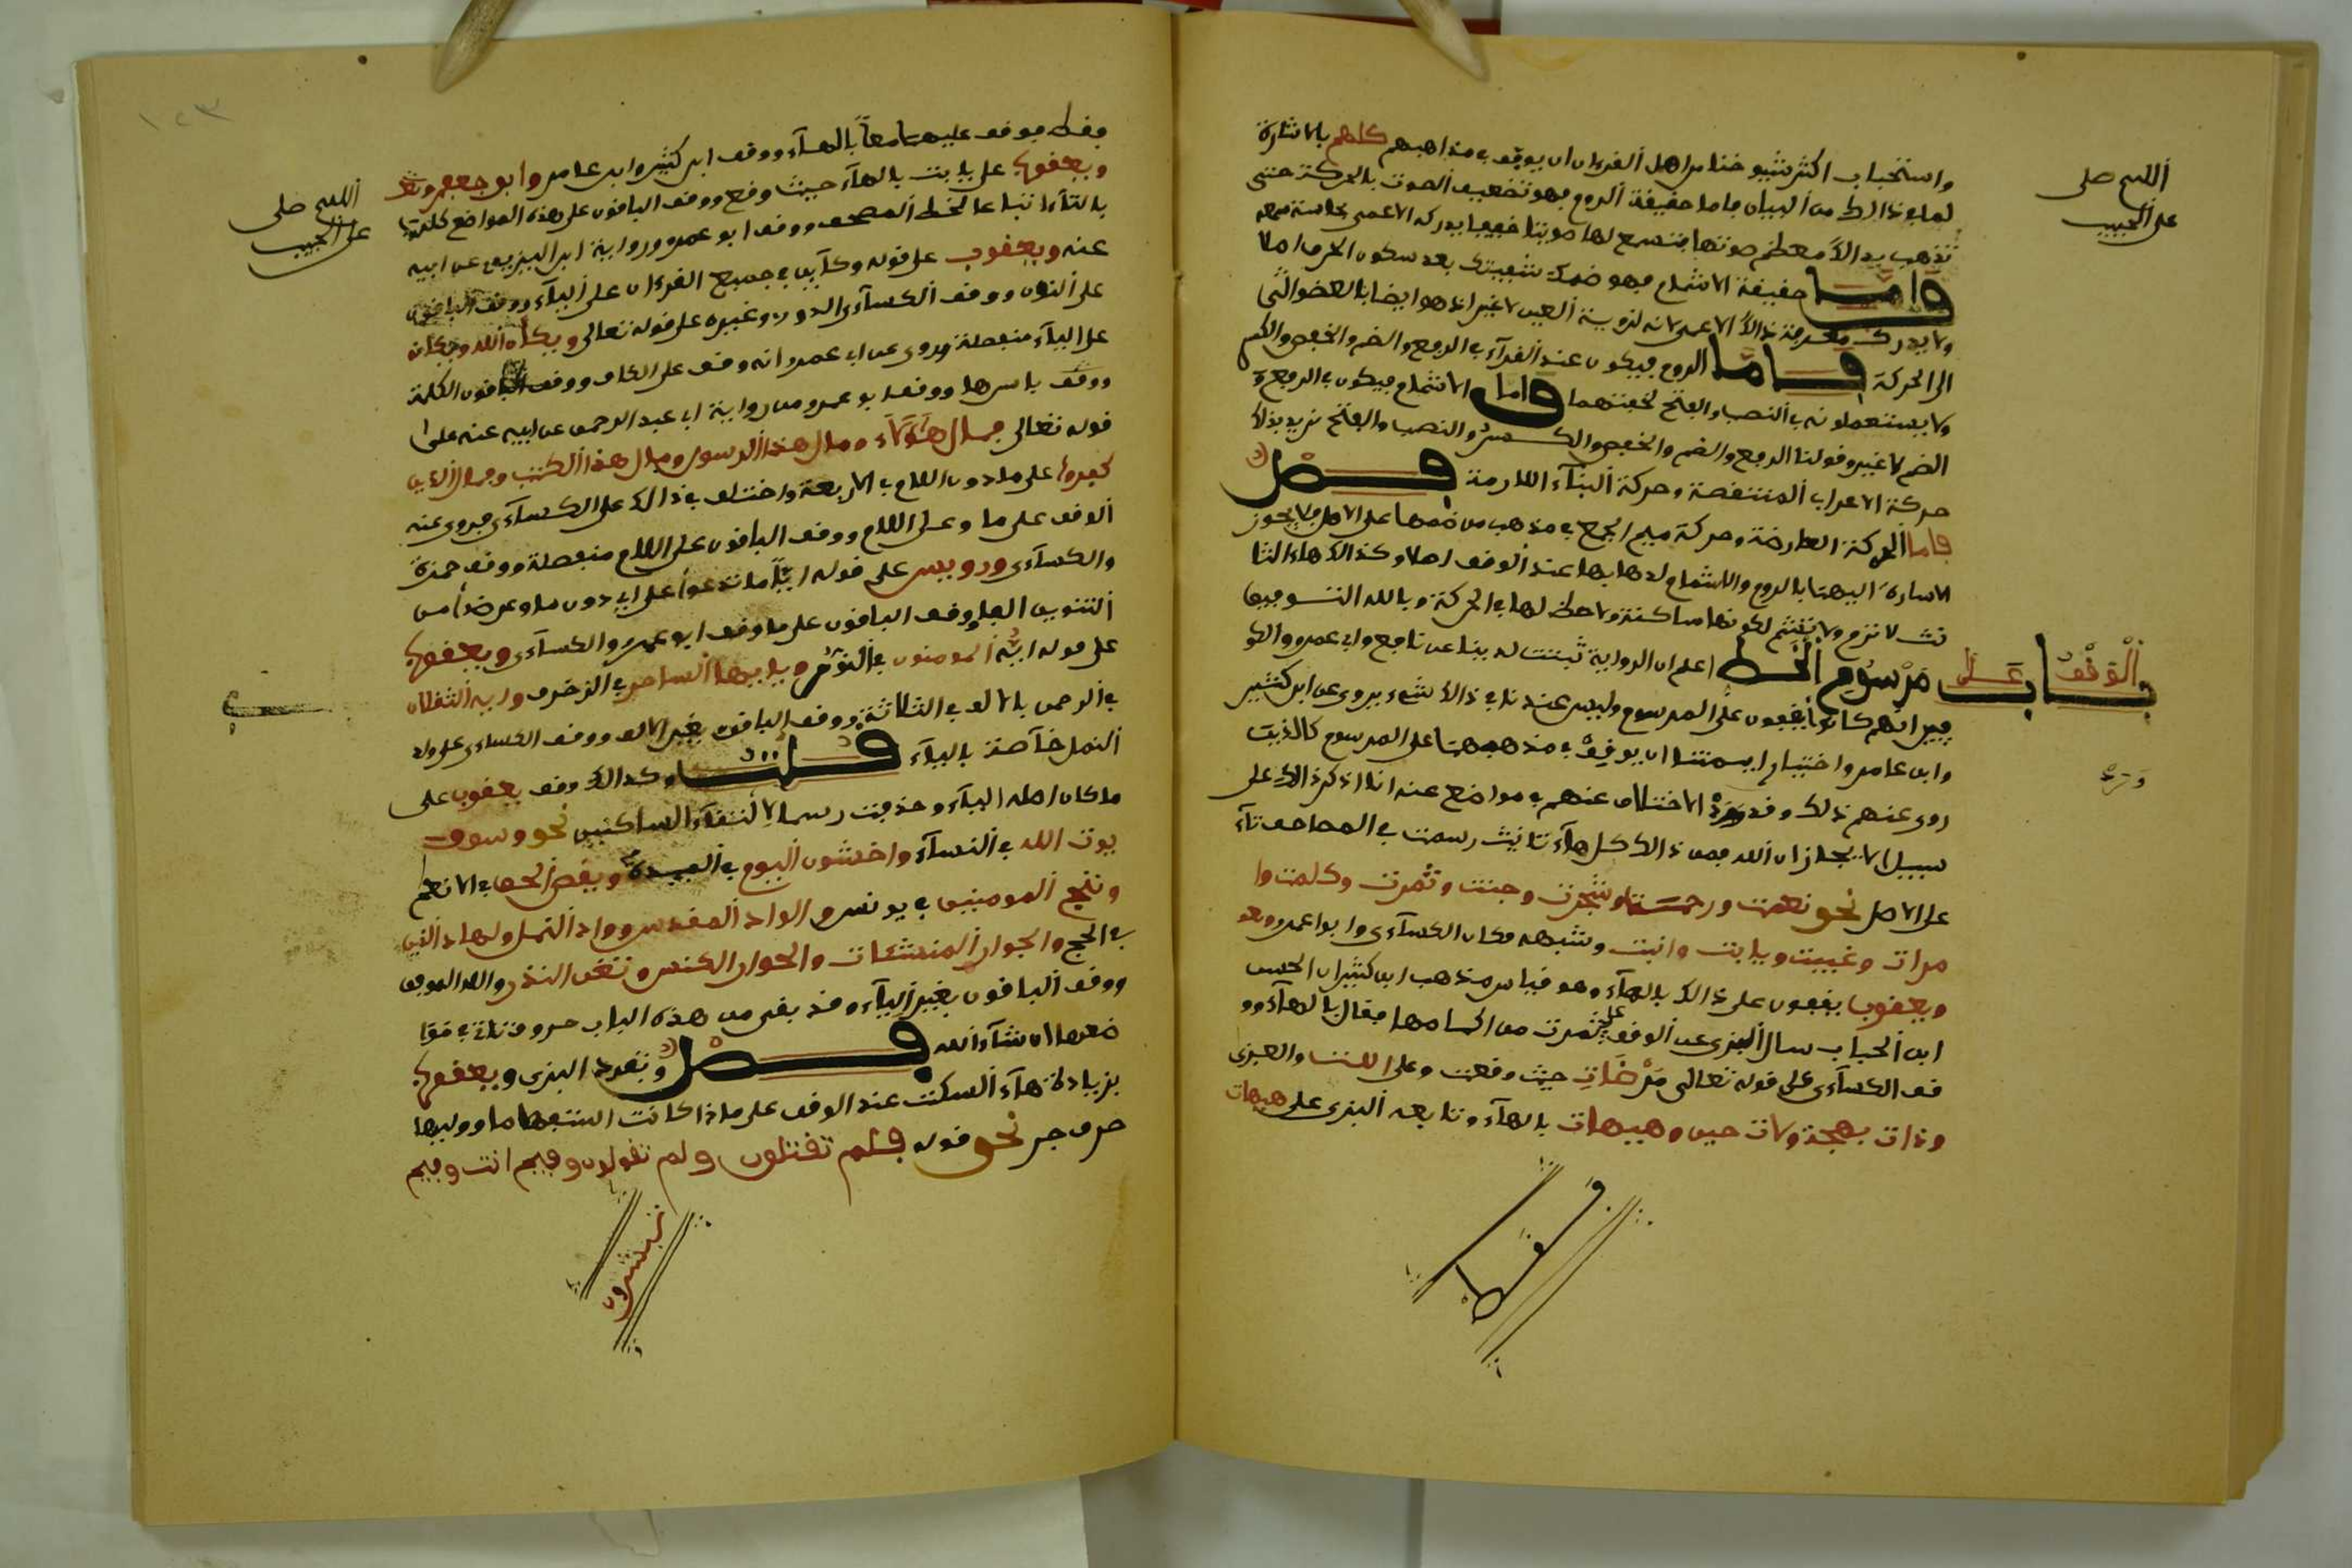 واستحباب اكثر شيوخنا من اهل القرءان ان يوقف في مذاهبهم كلهم بالاشارة
لما في ذالك من البيان فاما حقيقة الروم فهو تضعيف الصوت بالحركة حتى
تذهب بذالك معظم صوتها فتسمع لها صوتا خفيا يدركه الاعمى بحاسة سمعه
واما حقيقة الاشمام فهو ضمك شفيتك بعد سكون الحرف اصلا
ولا يدرك معرفة ذالك الاعمى لانه لروية العين لا غير اذ هو ايضا بالعضو التى
الى الحركة فاما الروم فيكون عند القرآء في الرفع والضم والخفض والكسر
ولا يستعملونه في النصب والفتح لخفتهما واما الاشمام فيكون في الرفع و
الضم لا غير وقولنا الرفع والضم والخفض والكسر والنصب والفتح نريد بذالك
حركة الاعراب المنتقصة وحركة البنآء اللازمة فصل
فاما الحركة العارضة وحركة ميم الجمع في مذهب من ضمها على الاصل فلا يجوز
الاشارة اليهما بالروم والاشمام لذهابها عند الوقف اصلا وكذالك هاء التا
نيث لا ترم ولا تشم لكونها ساكنة ولا حظ لها في الحركة وبالله التوفيق
باب الوقف على مرسوم الخط اعلم ان الرواية ثبتت لدينا عن نافع وابي عمرو والكو
فيين انهم كانوا يقفون على المرسوم وليس عندنا في ذالك شيء يروى عن ابن كثير
وابن عامر واختيار ايمتنا ان يوقف في مذهبهما على المرسوم كالذين
روى عنهم ذلك وقد ورد الاختلاف عنهم في مواضع عنه انا اذكر ذالك على
سبيل الايجاز ان شاء الله فمن ذالك كل هآء تانيث رسمت في المصاحف تآء
على الاصل نحو نعمت ورحمت وشجرت وجنت وثمرت وكلمت وا
مرات وغيبت ويابت وابنت وشبهه فكان الكسآءى وابوا عمرو
ويعقوب يقفون على ذالك بالهآء وهو قياس مذهب ابن كثير لان الحسن
ابن الحباب سال البزى عن الوقف على ثمرت من اكمامها فقال بالهآء وو
قف الكسآءى على قوله تعالى مرضات حيث وقعت وعلى اللت والعزى
وذات بهجة ولات حين وهيهات بالهآء وتابعه البزى على هيهات
فقط
اللهم صلى
على الحبيب
ورد
فقط فوقف عليهما معا بالهآء ووقف ابن كثير وابن عامر وابو جعفر
ويعقوب على يابت بالهآء حيث وقع ووقف الباقون على هذه المواضع كلها
بالتآء اتباعا لخط المصحف ووقف ابو عمرو ورواية ابن اليزيدي عن ابيه
عنه ويعقوب على قوله وكأين في جميع القرءان على اليآء ووقف الباقون
على النون ووقف الكسآءى الدورى وغيره على قوله تعالى ويكأن الله ويكأنه
على اليآء منفصلة وروى عن ابي عمرو انه وقف على الكاف ووقف الباقون الكلمة
ووقف باسرها ووقف ابو عمرو من رواية ابي عبد الرحمن عن ابيه عنه على
قوله تعالى فمال هؤلآء ومال هذا الرسول ومال هذا الكتب وفمال الذين
كفروا على ما دون اللام في الاربعة واختلف في ذالك على الكسآءى فروى عنه
الوقف على ما وعلى اللام ووقف الباقون على اللام منفصلة ووقف حمزة
والكسآءى ورويس على قوله ايا ما تدعوا على ايا دون ما وعوضا من
التنوين الفا ووقف الباقون على ما ووقف ابو عمرو والكسآءى ويعقوب
على قوله ايه المومنون في النور ويايها الساحر في الزخرف وايه الثقلان
في الرحمن بالالف في الثلاثة ووقف الباقون بغير الالف ووقف الكسآءى على واد
النمل خآصة باليآء قلت وكذالك وقف يعقوب على
ما كان اصله اليآء وحذفت رسما لالتقآء الساكنين نحو وسوف
يوت الله في النسآء واخشون اليوم في العقود ويقض الحق في الانعم
وننج المومنين في يونس والواد المقدس وواد النمل ولهاد الذين
في الحج والجوار المنشئات والجوار الكنس وتغن النذر
ووقف الباقون بغير اليآء وقد بقى من هذه الباب حروف تاتى في موا
ضعها ان شآء الله فصل وتفرد البزى ويعقوب
بزيادة هآء السكت عند الوقف على ما اذا كانت استفهاما ووليها
حرف جر نحو قوله فلم تقتلون ولم تقولون وفيم انت وفيم
تبشرون
اللهم صلى
على الحبيب
١٢٣